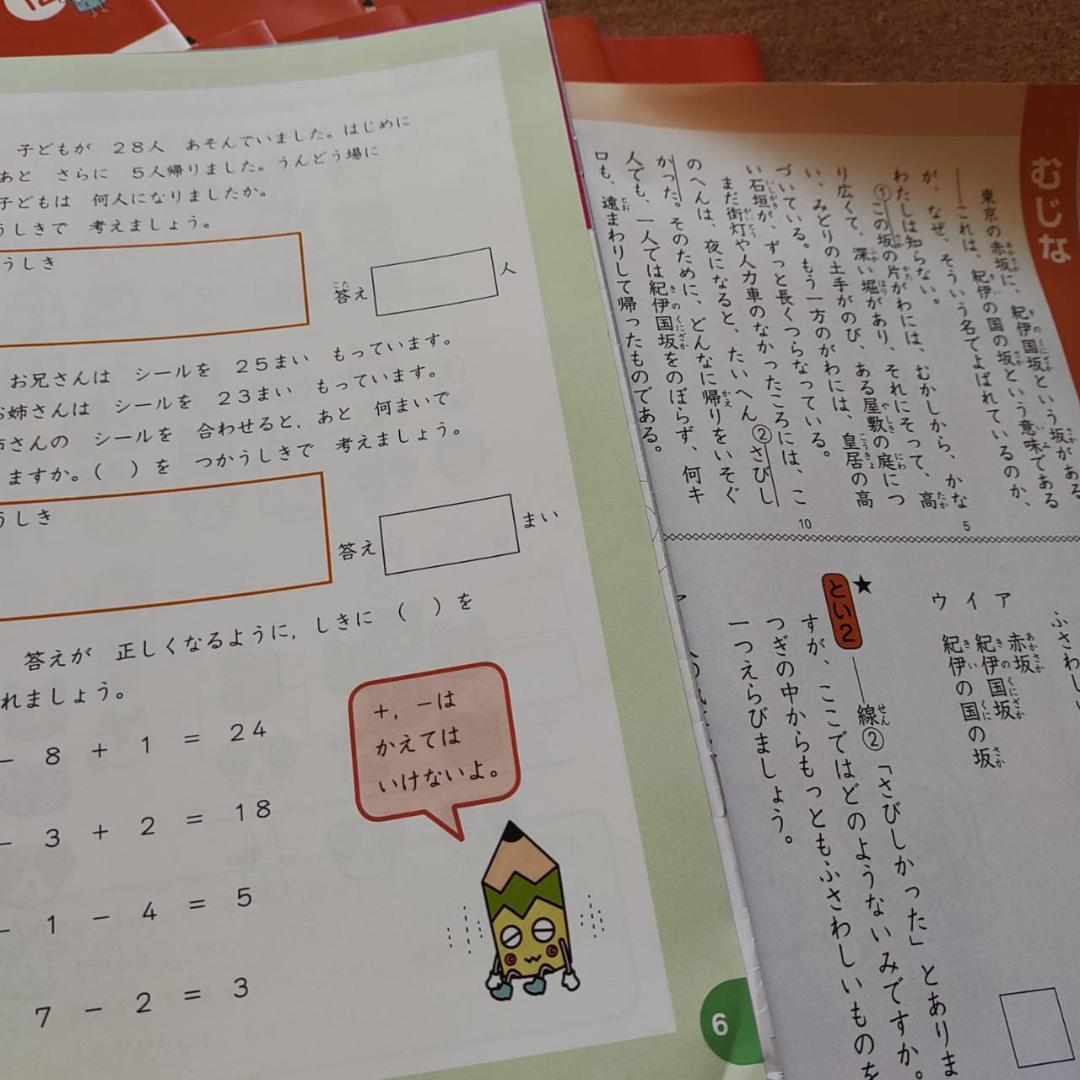 12
子どもが 28人 あそんでいました。はじめに
あと さらに 5人帰りました。うんどう場に
子どもは 何人になりましたか。
うしきで 考えましょう。
うしき
答え
こた
人
お兄さんは シールを 25まい もっています。
お姉さんは シールを 23まい もっています。
姉さんの シールを 合わせると,あと 何まいで
ますか。( )を つかうしきで 考えましょう。
うしき
答え
まい
答えが 正しくなるように,しきに ( )を
れましょう。
− 8 + 1 = 24
− 3 + 2 = 18
− 1 − 4 = 5
7 − 2 = 3
+,−は
かえては
いけないよ。
6
むじな
東京の赤坂に、紀伊国坂という坂がある
――これは、紀伊の国の坂という意味である
が、なぜ、そういう名でよばれているのか、
わたしは知らない。
①この坂の片がわには、むかしから、かな
り広くて、深い堀があり、それにそって、高
い、みどりの土手がのび、ある屋敷の庭につ
づいている。もう一方のがわには、皇居の高
い石垣が、ずっと長くつらなっている。
まだ街灯や人力車のなかったころには、こ
のへんは、夜になると、たいへん②さびし
かった。そのために、どんなに帰りをいそぐ
人でも、一人では紀伊国坂をのぼらず、何キ
ロも、遠まわりして帰ったものである。
5
10
ふさわし
ア 赤坂
イ 紀伊国坂
ウ 紀伊の国の坂
★
とい2
――線②「さびしかった」とありま
すが、ここではどのようないみですか。
つぎの中からもっともふさわしいものを
一つえらびましょう。